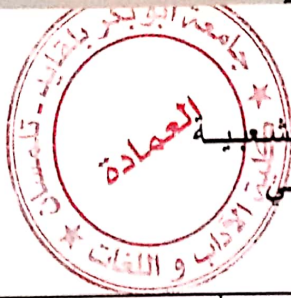 جامعة أبو بكر بلقايد - تلمسان
العمادة
كلية الآداب و اللغات